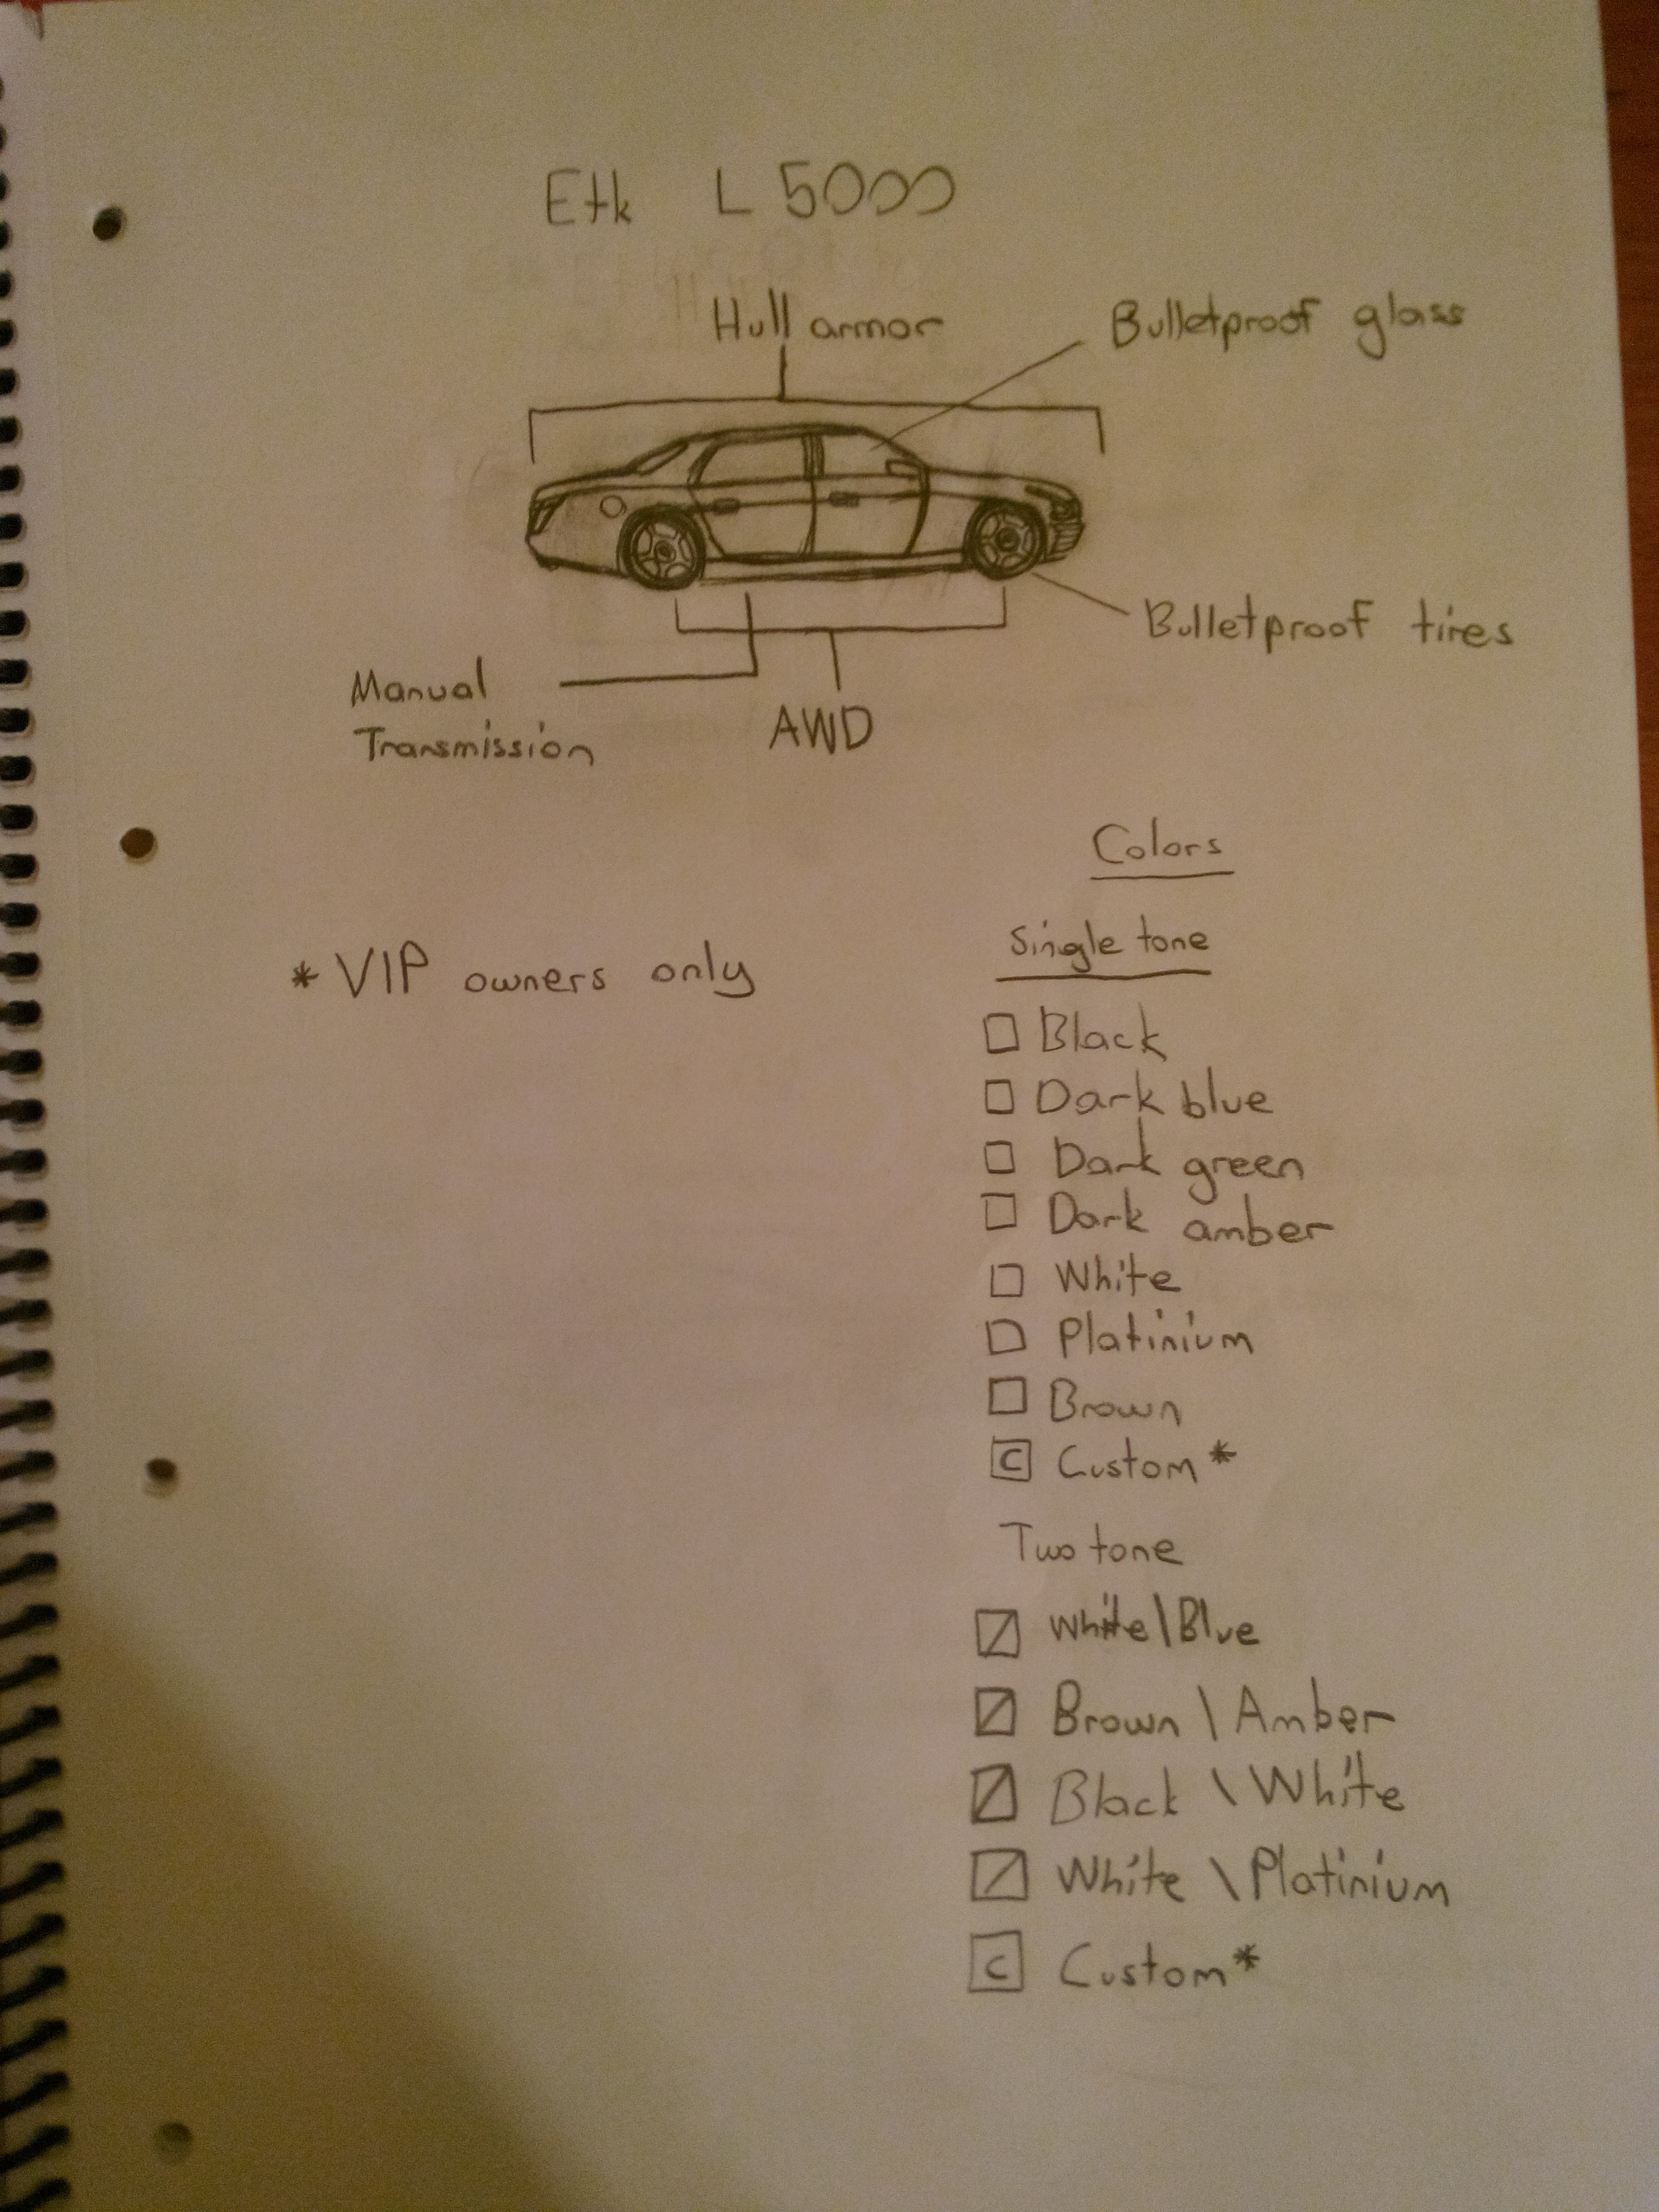 Etk L 5000
Hull armor
Bulletproof glass
Bulletproof tires
Manual
Transmission
AWD
Colors
* VIP owners only
Single tone
Black
Dark blue
Dark green
Dark amber
White
Platinium
Brown
C Custom*
Two tone
White\Blue
Brown \ Amber
Black \ White
White \ Platinium
C Custom*